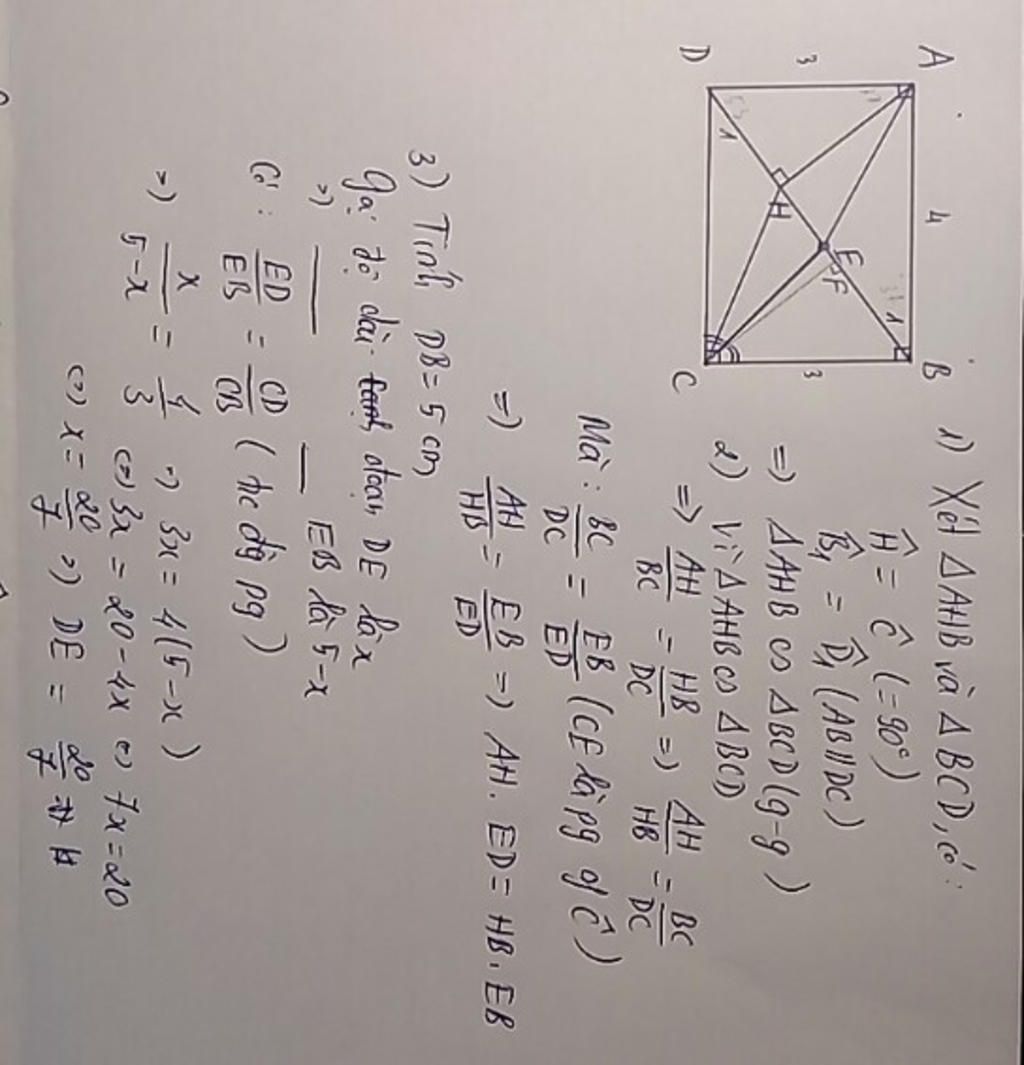 A 4 B
3 3
D C
H E F
1 1
1) Xét ΔAHB và ΔBCD, có:
Ĥ = Ĉ (= 90°)
B̂₁ = D̂₁ (AB // DC)
=> ΔAHB ∽ ΔBCD (g-g)
2) Vì ΔAHB ∽ ΔBCD
=> AH/BC = HB/DC => AH/HB = BC/DC
Mà: BC/DC = EB/ED (CE là pg gf Ĉ)
=> AH/HB = EB/ED => AH. ED = HB. EB
3) Tính DB = 5 cm
Gọi độ dài đoạn DE là x
=> —— — EB là 5-x
Có: ED/EB = CD/CB (t/c đg pg)
=> x/5-x = 4/3 => 3x = 4(5-x)
<=> 3x = 20 - 4x <=> 7x = 20
<=> x = 20/7 => DE = 20/7